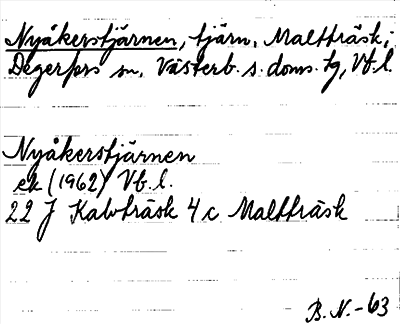 Nyåkerstjärnen, tjärn, Maltträsk,
Degerfors sn, Västerb. s. doms. tg, Vb. l.
Nyåkerstjärnen
ek (1962) Vb. l.
22 J Kalvträsk 4c Maltträsk
B. N. -63